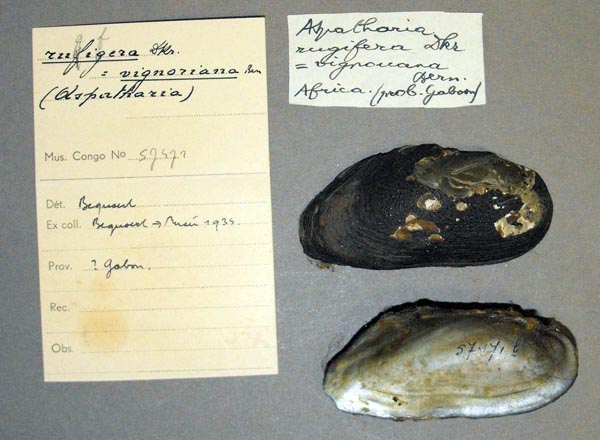 rufigera Dkr.
= vignoriana Bern
(Aspatharia)
Mus. Congo No 57471
Dét. Bequaert
Ex coll. Bequaert → 1935.
Prov. ? Gabon.
Rec.
Obs.
Aspatharia
rugifera Dkr
= vignouana
Bern.
Africa. (prob. Gaboon)